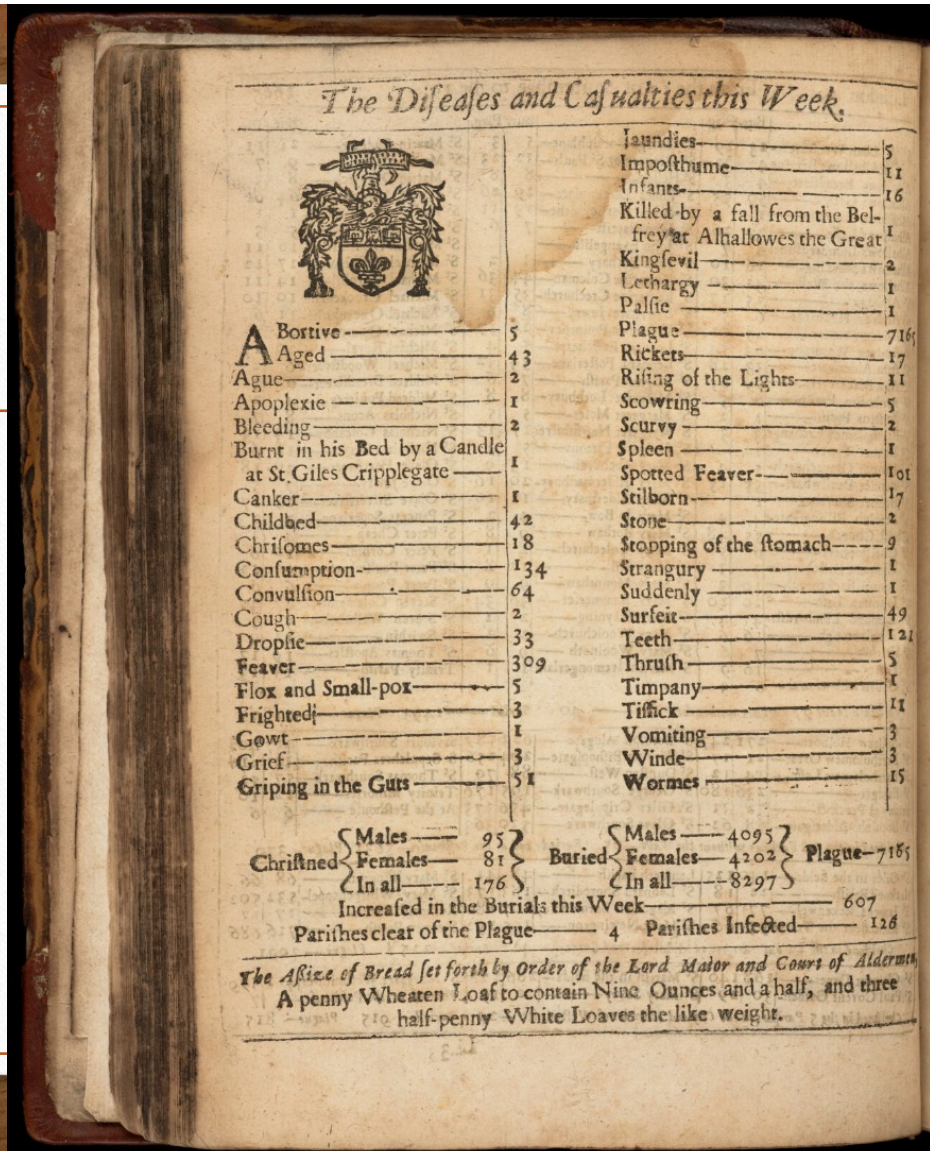 The Diſeaſes and Caſualties this Week.
ABortive 5
Aged 43
Ague 2
Apoplexie 1
Bleeding 2
Burnt in his Bed by a Candle
at St. Giles Cripplegate 1
Canker 1
Childbed 42
Chriſomes 18
Conſumption 134
Convulſion 64
Cough 2
Dropſie 33
Feaver 309
Flox and Small-pox 5
Frighted 3
Gowt 1
Grief 3
Griping in the Guts 51
Jaundies 5
Impoſthume 11
Infants 16
Killed by a fall from the Bel-
frey at Alhallowes the Great 1
Kingſevil 2
Lethargy 1
Palſie 1
Plague 7165
Rickets 17
Riſing of the Lights 11
Scowring 5
Scurvy 2
Spleen 1
Spotted Feaver 101
Stilborn 17
Stone 2
Stopping of the ſtomach 9
Strangury 1
Suddenly 1
Surfeit 49
Teeth 121
Thruſh 5
Timpany 1
Tiſſick 11
Vomiting 3
Winde 3
Wormes 15
Chriſtned Males 95 Females 81 In all 176 Buried Males 4095 Females 4202 In all 8297 Plague 7165
Increaſed in the Burials this Week 607
Pariſhes clear of the Plague 4 Pariſhes Infected 126
The Aſſize of Bread ſet forth by Order of the Lord Maior and Court of Aldermen,
A penny Wheaten Loaf to contain Nine Ounces and a half, and three
half-penny White Loaves the like weight.